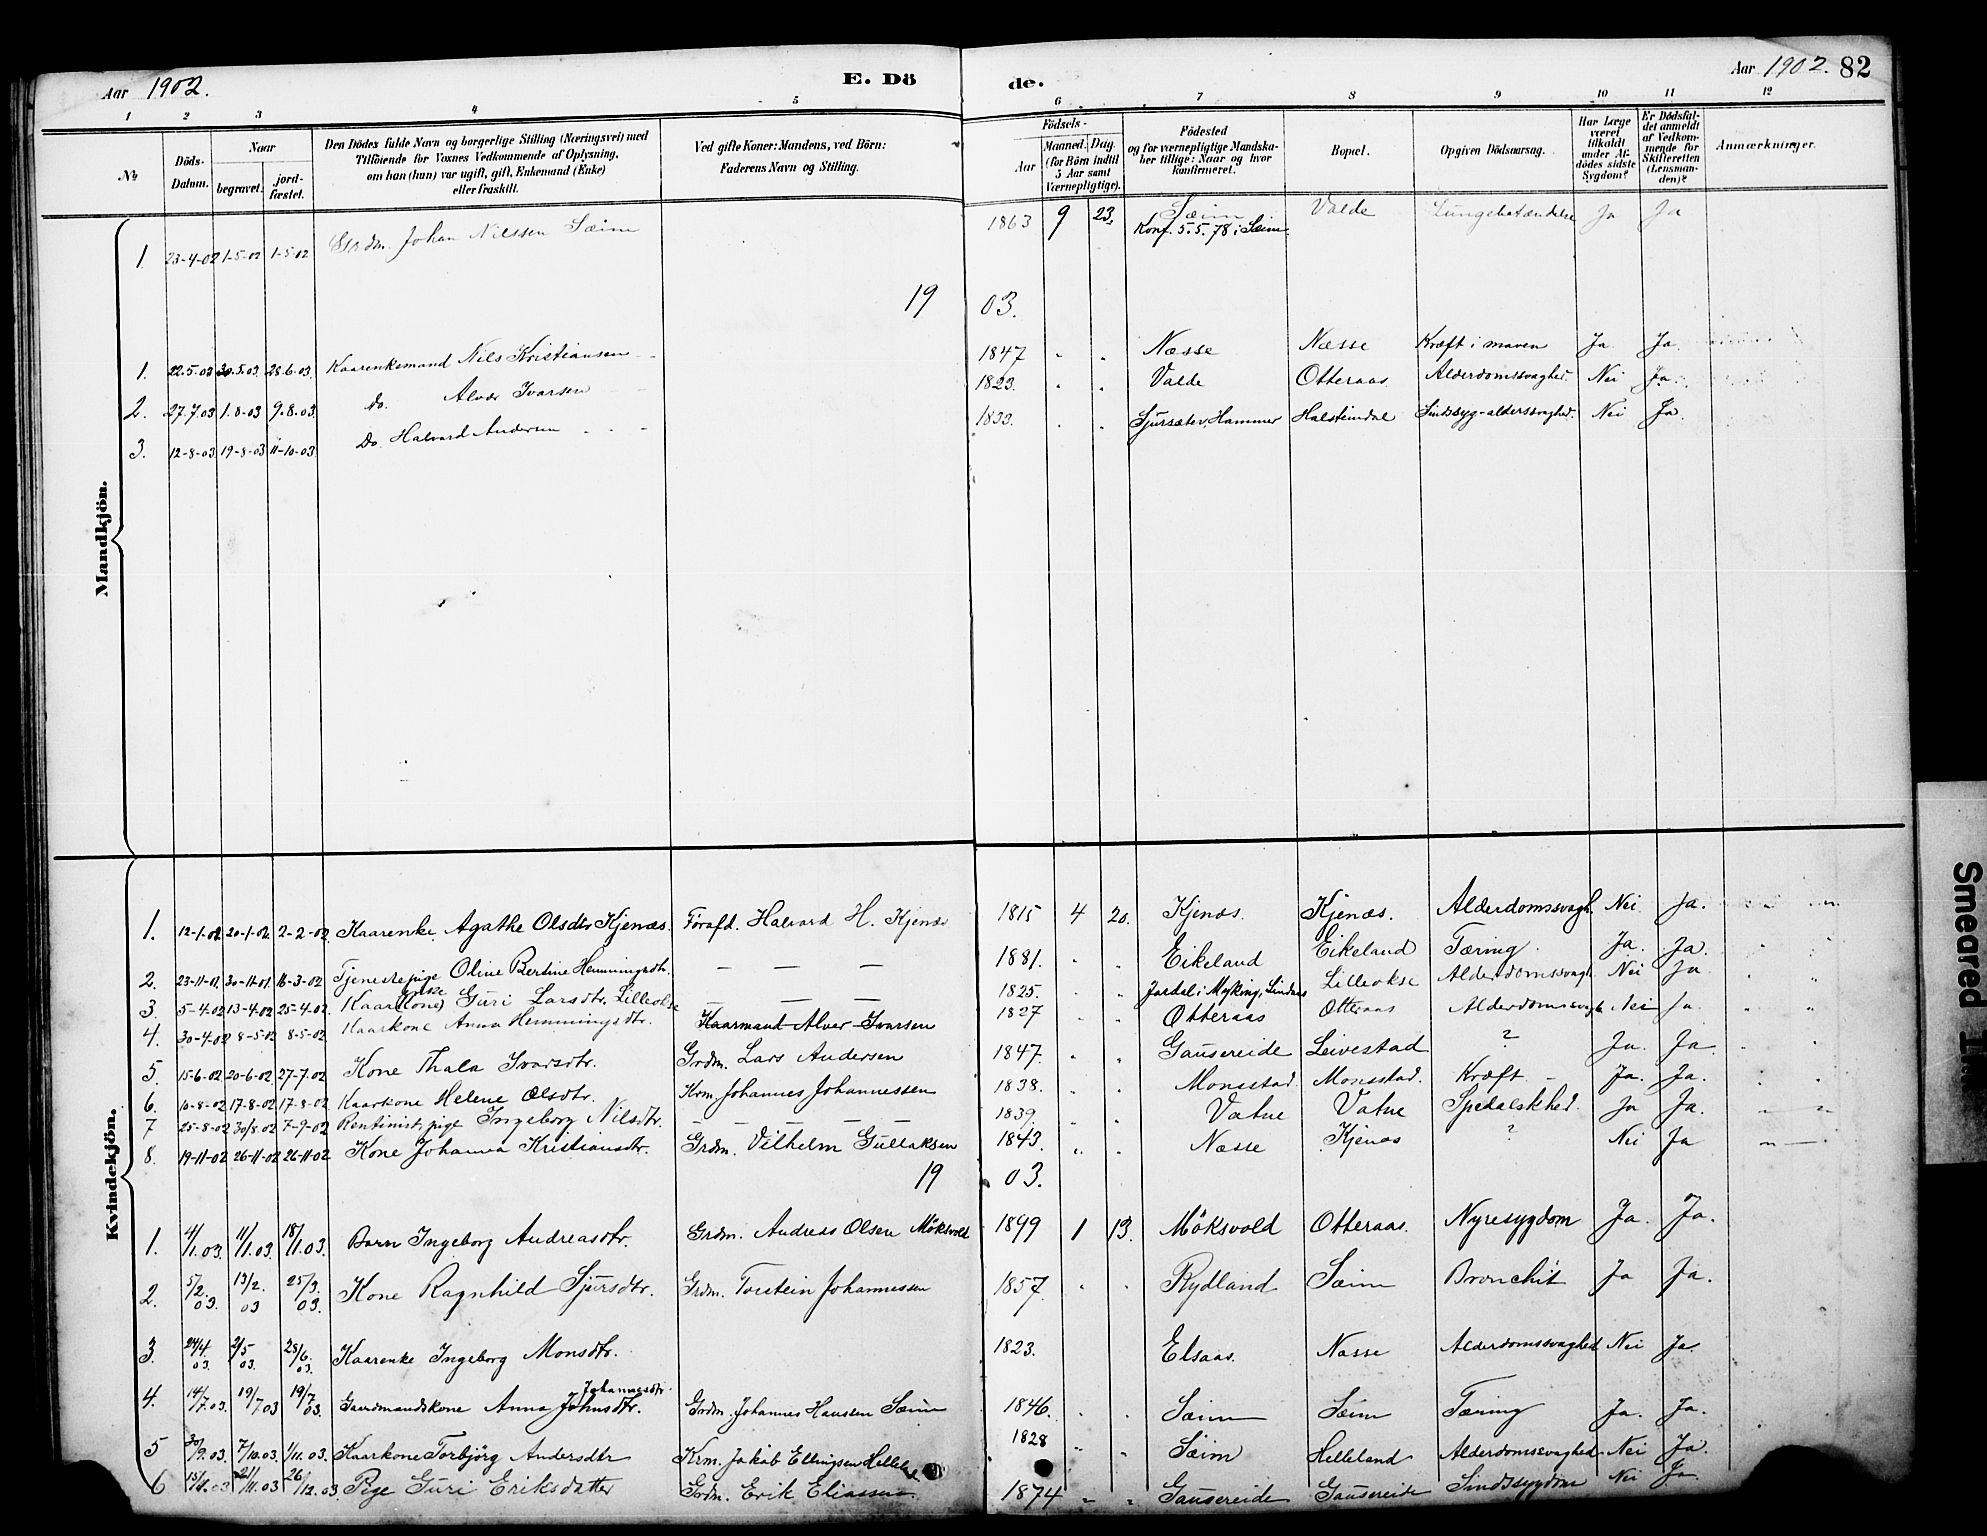 Aar 1902. E. Dö de. Aar 1902. 82
1 2 3 4 5 6 7 8 9 10 11 12
№ Döds-Datum. Naar begravet. jordfæstet. Den Dödes fulde Navn og borgerlige Stilling (Næringsvei) med Tilföiende for Voxnes Vedkommende af Oplysning, om han (hun) var ugift, gift, Enkemand (Enke) eller fraskilt. Ved gifte Koner: Mandens, ved Börn: Faderens Navn og Stilling. Födsels- Aar Maaned. Dag. (for Börn indtil 5 Aar samt Værnepligtige). Födested og for værnepligtige Mandskaber tillige: Naar og hvor konfirmeret. Bopæl. Opgiven Dödsaarsag. Har Læge været tilkaldt under Afdödes sidste Sygdom? Er Dödsfaldet anmeldt af Vedkommende for Skifteretten (Lensmanden)? Anmærkninger.
Mandkjön.
1. 23-4-02 1-5-02 1-5-02 Grdm. Johan Nilssen Sæim 1863 9 23. Sæim Konf. 5.5.78 i Sæim Valde Lungebetændelse Ja Ja
1903.
1. 22.5.03 30.5.03. 28.6.03. Kaarenkemand Nils Kristiansen 1847 " " Næsse Næsse Kræft i maven Ja Ja.
2. 27.7.03 1.8-03 9.8.03. Do. Alver Ivarsen 1823. " " Valde Otteraas Alderdomssvaghed. Nei Ja.
3. 12-8-03 19-8-03 11-10-03. Do. Halvard Andersen 1833. " " Sjursæter, Hammer Halsteindal Sindssyg-alderssvaghed. Nei Ja.
Kvindekjön.
1. 12-1-02 20-1-02 2-2-02 Kaarenke Agathe Olsdtr Kjenæs. Forafd. Halvard H. Kjenæs 1815 4 20. Kjenæs. Kjenæs. Alderdomssvagh. Nei Ja.
2. 23-11-01. 30-11-01 16-3-02 Tjenestepige Oline Bertine Hemmingsdtr. — — — 1881. " " Eikeland Eikeland Tæring. Ja. Ja.
3. 5-4-02 13-4-02 25-4-02 Kaar(kone) enke Guri Larsdtr. Lilleokse — — — 1825. " " Jordal i Myking, Lindaas Lilleokse Alderdomssvagh. Nei Ja
4. 30-4-02 8-5-02 8-5-02 Kaarkone Anna Hemmingsdtr. Kaarmand Alver Ivarsen 1827 " " Otteraas Otteraas Alderdomssvagh Nei Ja.
5. 15-6-02 20-6-02 27-7-02 Kone Thala Ivarsdtr. Grdm. Lars Andersen 1847. " " Gausereide Leivestad ? Ja. Ja.
6. 10-8-02 17-8-02 17-8-02 Kaarkone Helene Olsdtr. Krm. Johannes Johannessen 1838. " " Monsstad Monsstad. Kræft — Ja. Ja.
7 25-8-02 30/8.02 7-9-02 Rentenist, pige Ingeborg Nilsdtr. — — — — 1839. " " Vatne Vatne Spedalskhed. Ja Ja.
8. 19-11-02 26-11-02 26-11-02 Kone Johanna Kristiansdtr. Grdm. Vilhelm Gullaksen 1843. " " Næsse Kjenæs ? Nei Ja
1903.
1. 4/1.03. 11/1.03. 18/1.03. Barn Ingeborg Andreasdtr. Grdm. Andreas Olsen Möksvold 1899 1 13. Möksvold Otteraas. Nyresygdom Ja. Ja.
2. 5/2.03. 13/2.03 25/3.03. Kone Ragnhild Sjursdtr. Grdm. Torstein Johannessen 1857. " " Rydland Sæim Bronchit Ja Ja.
3. 24/4.03. 2/5 03. 28/6.03. Kaarenke Ingeborg Monsdtr. 1823. Elsaas. Næsse Alderdomssvaghed Nei Ja.
4. 14/7.03. 19/7.03 19/7.03. Gaardmandskone Anna Johnsdtr. Johannesdtr. Grdm. Johannes Hanssen Sæim 1846. " " Sæim Sæim Tæring Ja. Ja.
5 30/9.03. 7/10.03. 1/11.03. Kaarkone Torbjörg Andersdtr Krm. Jakob Ellingsen Helleland 1828 " " Sæim Helleland Alderdomssvaghed Nei Ja.
6 21/11.03 26/12.03 Pige Guri Eriksdatter Grdm. Erik Eliassen 1874 " " Gausereide Gausereide Sindssygdom Nei Ja.
Smeared